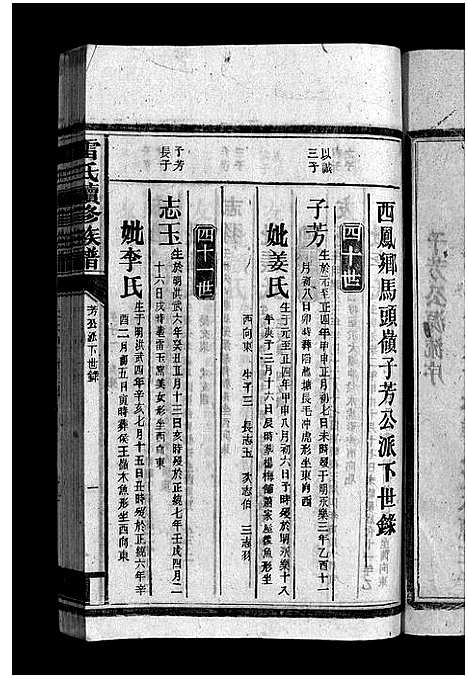 西鳳鄉馬頭嶺子芳公派下世錄
四十世
以誠
三子
子芳
生於元至正四年甲申正月初七日未時歿於明永樂三年乙酉十一
月初八日卯時葬陷池塘長毛冲虎形坐東向西
妣姜氏
生于元至正四年甲申八月初六日子時歿於明永樂十八
年庚子三月十六日辰時葬楊梅舖蕭家屋後魚形坐
西向東 生子三 長志玉 次志伯 三志羽
四十一世
子芳
長子
志玉
生於明洪武六年癸丑正月十三日亥時歿於正統七年壬戌四月二
十六日戌時葬
玉窩美女形坐西向東
妣李氏
生于明洪武四年辛亥七月十五日丑時歿於正統六年辛
酉二月初五日寅時葬侯王嶺木魚形坐西向東
雷氏續修族譜
芳公派下世錄
一